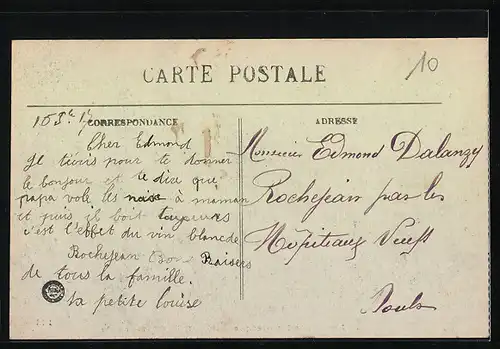 10
CARTE POSTALE
CORRESPONDANCE
Cher Edmond
Je técris pour te donner
le bonjour et te dire que
papa vole les noix à maman
et puis il boit toujours
c'est l'effet du vin blanc de
Rochejean Bons Baisers
de tous la famille.
ta petite Louise
ADRESSE
Monsieur Edmond Dalanzy
Rochejean par les
Hôpitaux Neufs
Doubs